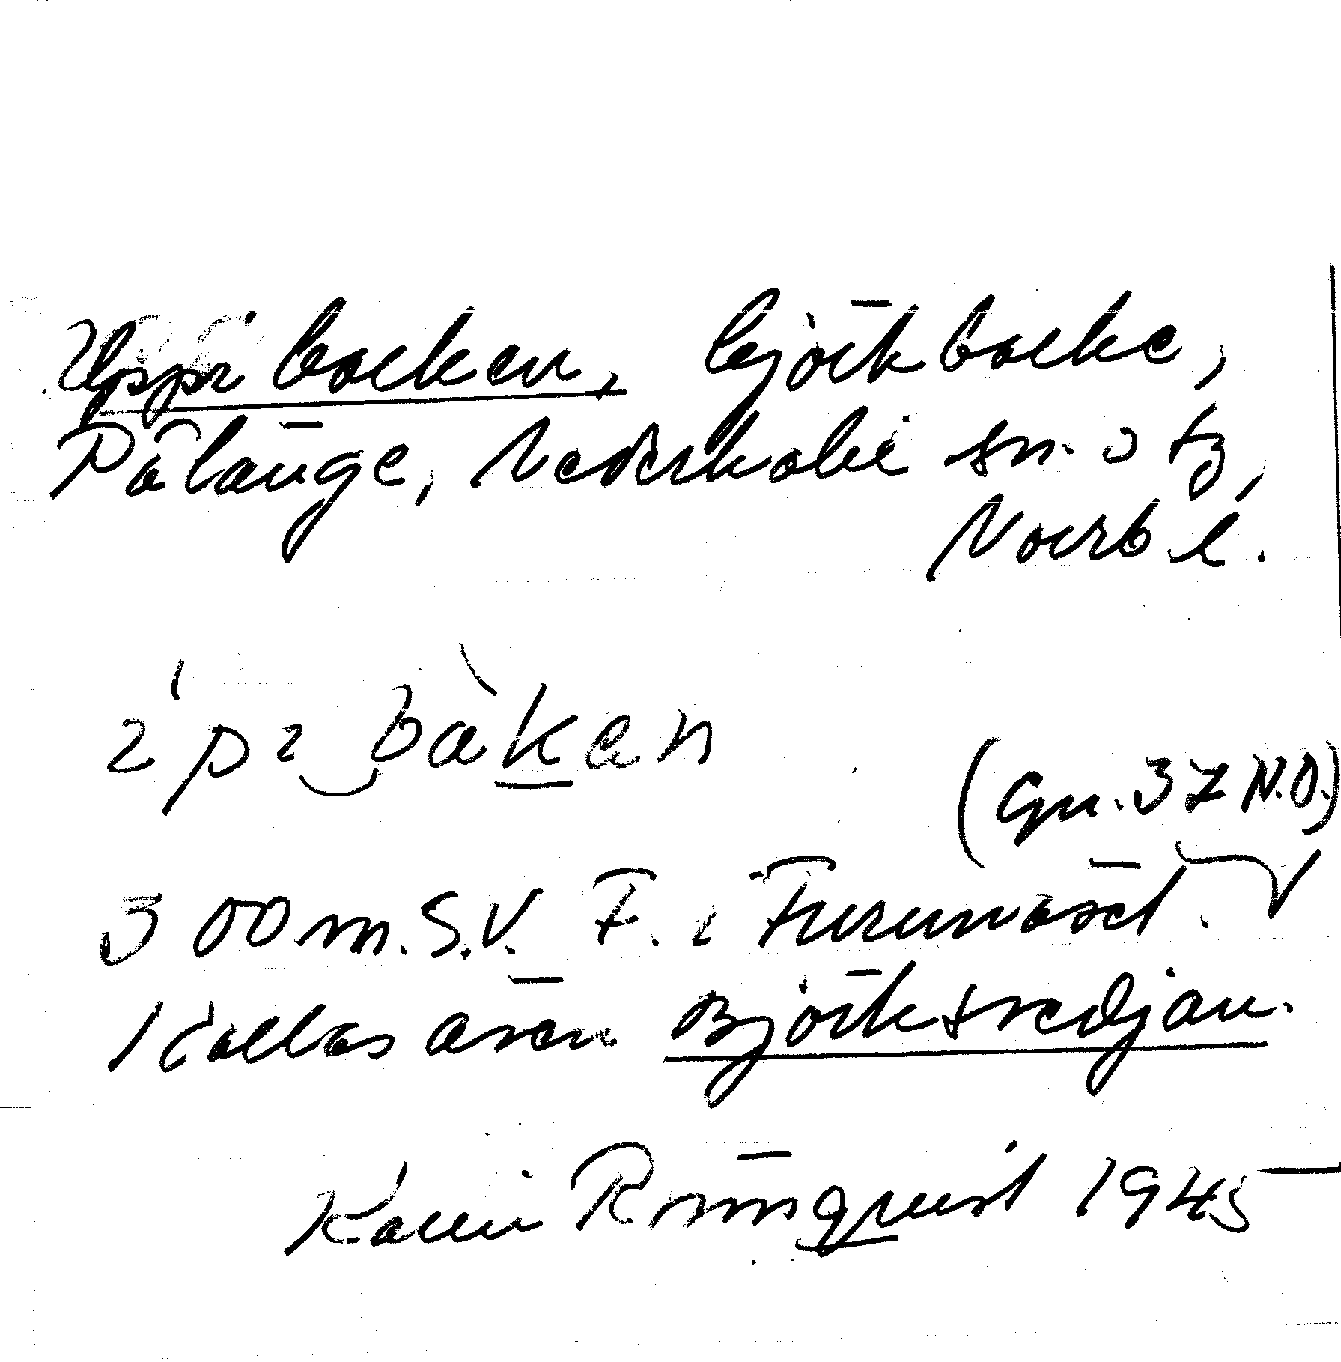 Uppibacken, björkbacke,
Pålänge, Nederkalix sn. o tg,
Norrb l.
ɩ'pɩ bàkan
(Gr. 37 N.O.)
300 m. S.V. F. i Furunäset.
Kallas även Björksvedjan.
Karin Rönnquist 1945